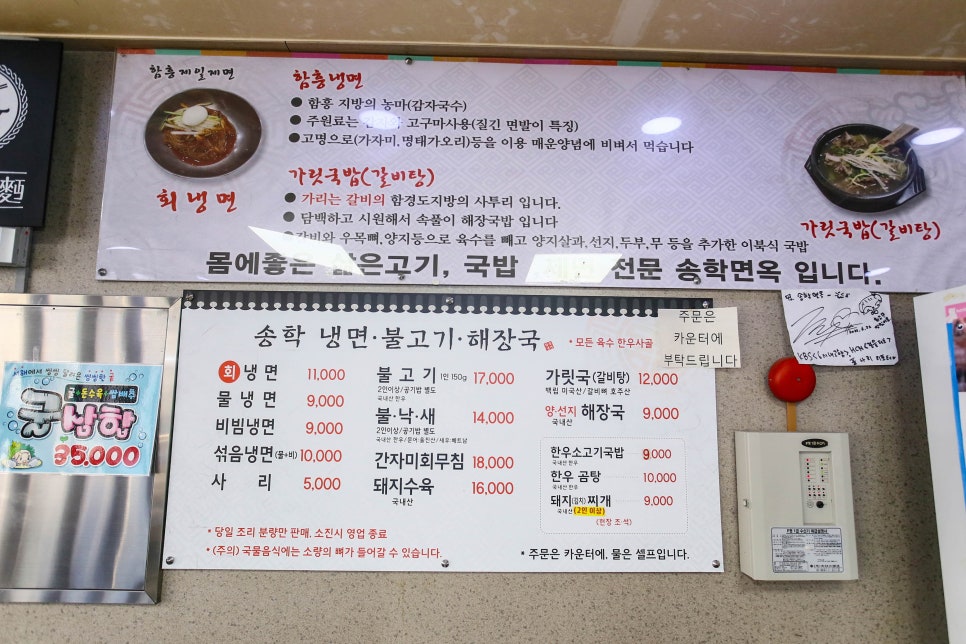 함흥제일제면
회냉면
함흥냉면
● 함흥 지방의 농마(감자국수)
● 주원료는 고구마사용(질긴 면발이 특징)
●고명으로(가자미,명태가오리)등을 이용 매운양념에 비벼서 먹습니다
가릿국밥(갈비탕)
● 가리는 갈비의 함경도지방의 사투리 입니다.
● 담백하고 시원해서 속풀이 해장국밥 입니다
●갈비와 우목뼈,양지등으로 육수를 빼고 양지살과,선지,두부,무 등을 추가한 이북식 국밥
가릿국밥(갈비탕)
몸에좋은 삶은고기, 국밥 전문 송학면옥 입니다.
송학 냉면·불고기·해장국
* 모든 육수 한우사골
주문은
카운터에
부탁드립니다
회냉면 11,000
물냉면 9,000
비빔냉면 9,000
섞음냉면(물+비) 10,000
사리 5,000
불고기 1인 150g 17,000
2인이상/공기밥 별도
국내산 한우
불·낙·새 14,000
2인이상/공기밥 별도
간자미회무침 18,000
돼지수육 16,000
국내산
가릿국(갈비탕) 12,000
양.선지 해장국 9,000
국내산
한우소고기국밥 9,000
국내산 한우
한우 곰탕 10,000
국내산 한우
돼지(김치)찌개 9,000
국내산 (2인 이상)
* 당일 조리 분량만 판매, 소진시 영업 종료
* (주의) 국물음식에는 소량의 뼈가 들어갈 수 있습니다.
* 주문은 카운터에, 물은 셀프입니다.
굴+돈수육+쌈배추
굴삼합
35,000